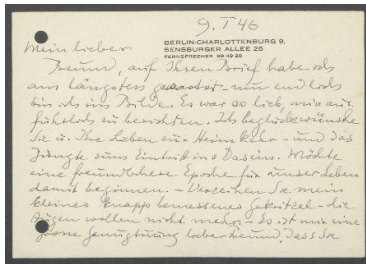 9. I 46
BERLIN-CHARLOTTENBURG 9,
SENSBURGER ALLEE 25
FERNSPRECHER 99 49 28
Mein lieber
Freund, auf Ihren Brief habe ich
am längsten gewartet - nun endlich
bin ich im Bilde. Es war so lieb, mir aus-
führlich zu berichten. Ich beglückwünsche
Sie u. Ihre Lieben zur Heimkehr - und das
Jüngste zum Eintritt ins Dasein. Möchte
eine freundlichere Epoche für unser Leben
damit beginnen. - Verzeihen Sie mein
kleines knapp bemessenes Gekritzel - die
Augen wollen nicht mehr - Es ist mir eine
grosse Genugtuung lieber Freund, dass Sie